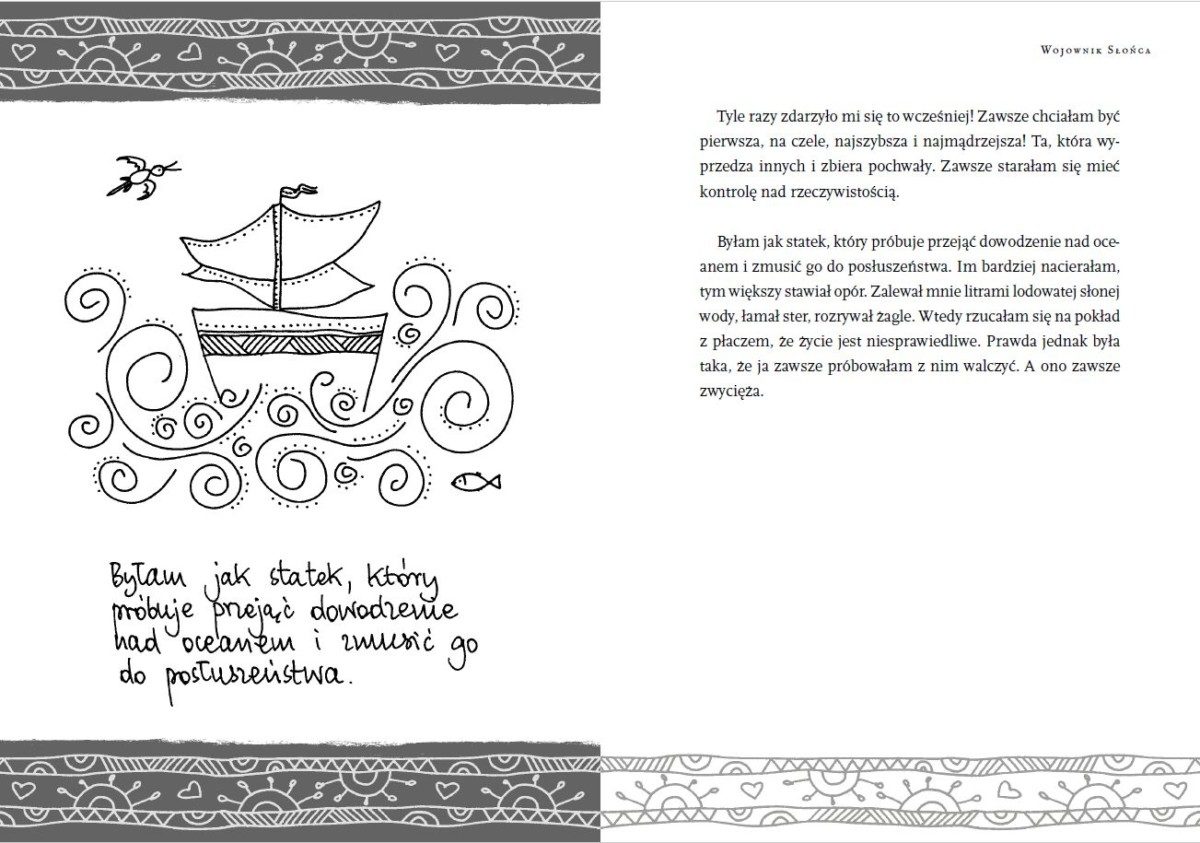 Byłam jak statek, który
próbuje przejąć dowodzenie
nad oceanem i zmusić go
do posłuszeństwa.
Wojownik Słońca
Tyle razy zdarzyło mi się to wcześniej! Zawsze chciałam być
pierwsza, na czele, najszybsza i najmądrzejsza! Ta, która wy-
przedza innych i zbiera pochwały. Zawsze starałam się mieć
kontrolę nad rzeczywistością.
Byłam jak statek, który próbuje przejąć dowodzenie nad oce-
anem i zmusić go do posłuszeństwa. Im bardziej nacierałam,
tym większy stawiał opór. Zalewał mnie litrami lodowatej słonej
wody, łamał ster, rozrywał żagle. Wtedy rzucałam się na pokład
z płaczem, że życie jest niesprawiedliwe. Prawda jednak była
taka, że ja zawsze próbowałam z nim walczyć. A ono zawsze
zwycięża.